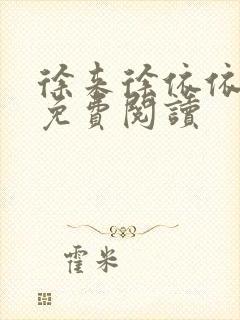 徐来徐依依
免費閱讀
霍米